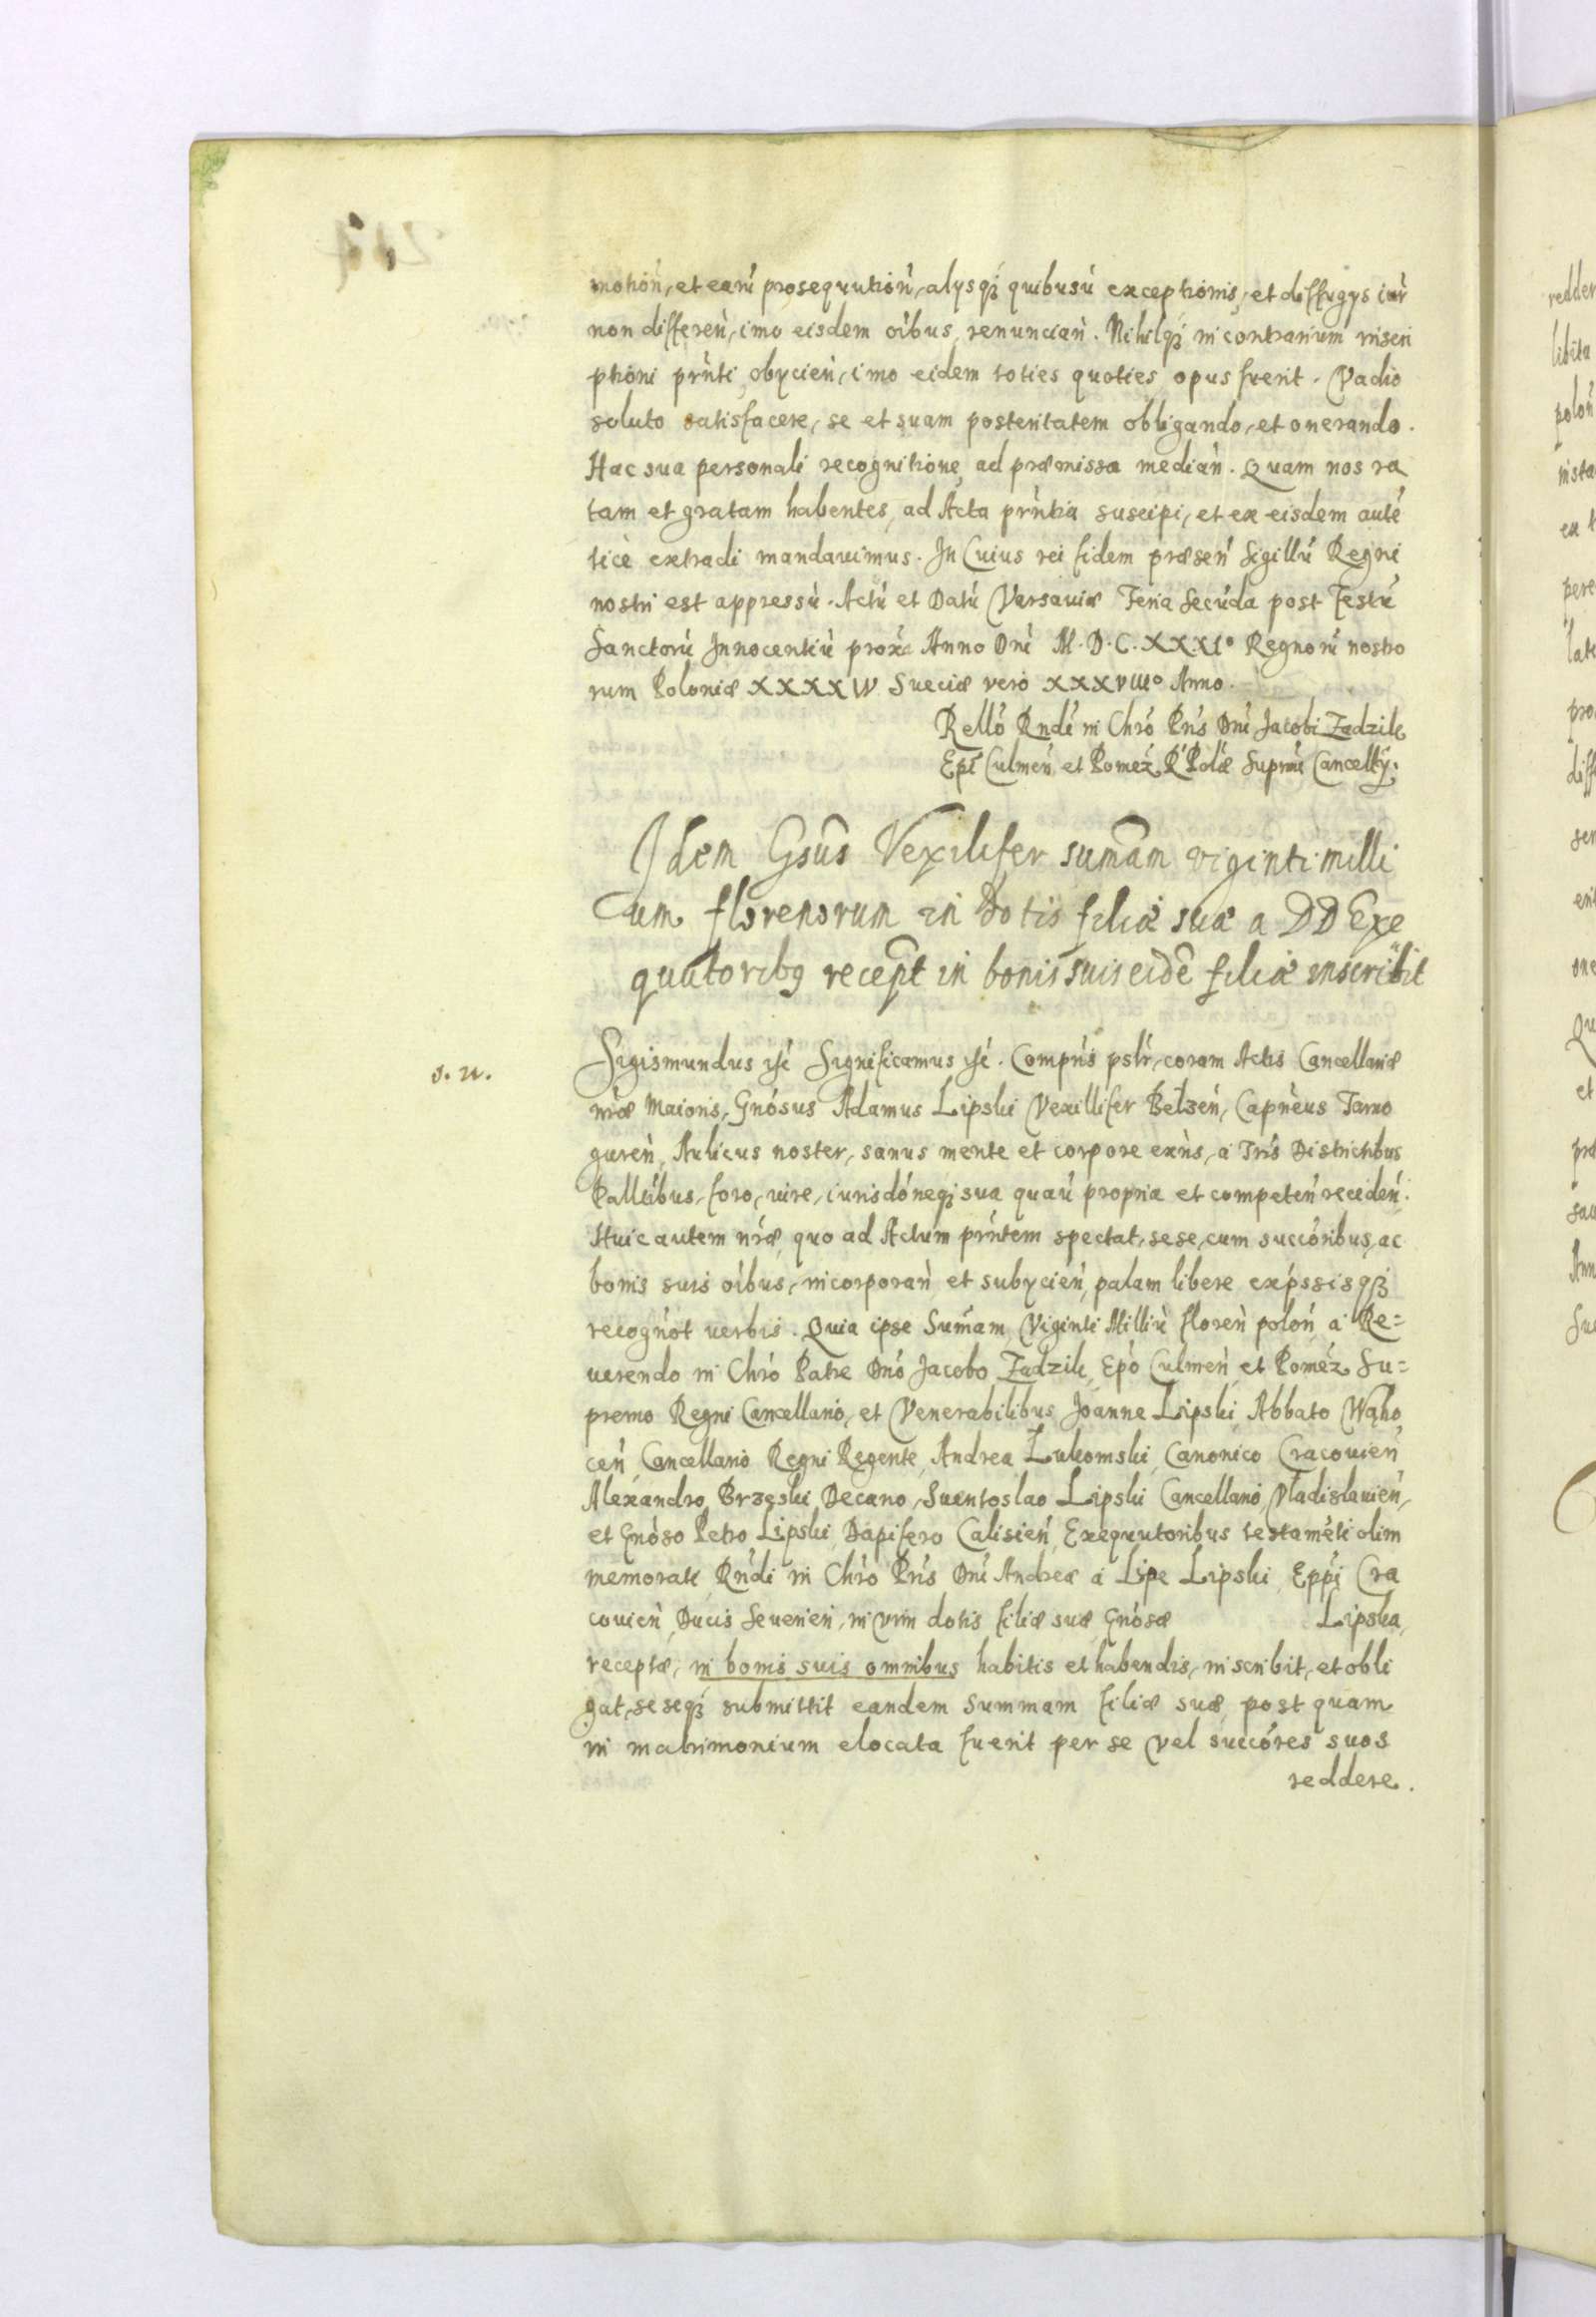 motioń, et earú prosequutioń, alysqȝ quibusú exceptionis, et diffugys iur
non differeń, imo eisdem oíbus renunciań. Nihilqȝ in contrarium inscri
ptioni prńti obycień, imo eidem toties quoties opus fuerit. Vadio
soluto satisfacere, se et suam posteritatem obligando, et onerando.
Hac sua personali recognitione ad præmissa mediań. Quam nos ra
tam et gratam habentes, ad Acta prńtia suscipi, et ex eisdem auté
ticè extradi mandavimus. In Cuius rei fidem præseń Sigillú Regni
nostri est appressú. Actú et Datú Varsaviæ Feria Secúda post Festú
Sanctorú Innocentiú prox: Anno Dni M.D.C.XXXI° Regnorú nostro
rum Poloniæ XXXXIV Sueciæ vero XXXVIII° Anno.
Relló Rndí in Chró Pris Dni Jacobi Zadzik
Epi Culmeń et Pomez R Polæ Supmi Cancellrij.
Idem Gsus Vexilifer sumam viginti milli
um florenorum in Dotis filiæ suæ a DD Exe
quutoribg recept in bonis suis eidē filiæ inscribit
s. n.
Sigismundus etć Significamus etć. Compńs pslr, coram Actis Cancellariæ
nræ Maioris, Gnósus Adamus Lipski Vexillifer Belzeń, Capńeus Tarno
gureń, Aulicus noster, sanus mente et corpore exńs, a Tris Districtibus
Pallíbus, foro, iure, iurisdóneqȝ sua quaú propria et competeń recedeń.
Huic autem nræ, quo ad Actum prńtem spectat, sese, cum succóribus, ac
bonis suis oíbus, incorporań et subycień, palam libere expssisqȝ
recogńot verbis. Quia ipse Sumam Viginti Milliú floreń poloń, a Re=
verendo in Chró Patre Dnó Jacobo Zadzik, Epó Culmeń et Poméz Su=
premo Regni Cancellario, et Venerabilibus Joanne Lipski Abbato Wąho
ceń Cancellario Regni Regente, Andrea Łukomski, Canonico Cracovień
Alexandro Brzęski Decano, Suentoslao Lipski Cancellario Vladislavień,
et Gnóso Petro Lipski, Dapifero Calisień, Exequutoribus testaméti olim
memorati Rndi in Chró Pris Dni Andreæ a Lipe Lipski Eppi Cra
covień, Ducis Severień, in vim dotis filiæ suæ Gnósæ Lipska,
receptæ, in bonis suis omnibus habitis et habendis, inscribit, et obli
gat, seseqȝ submittit eandem Summam filiæ suæ, post quam
in matrimonium elocata fuerit per se vel succóres suos
reddere.